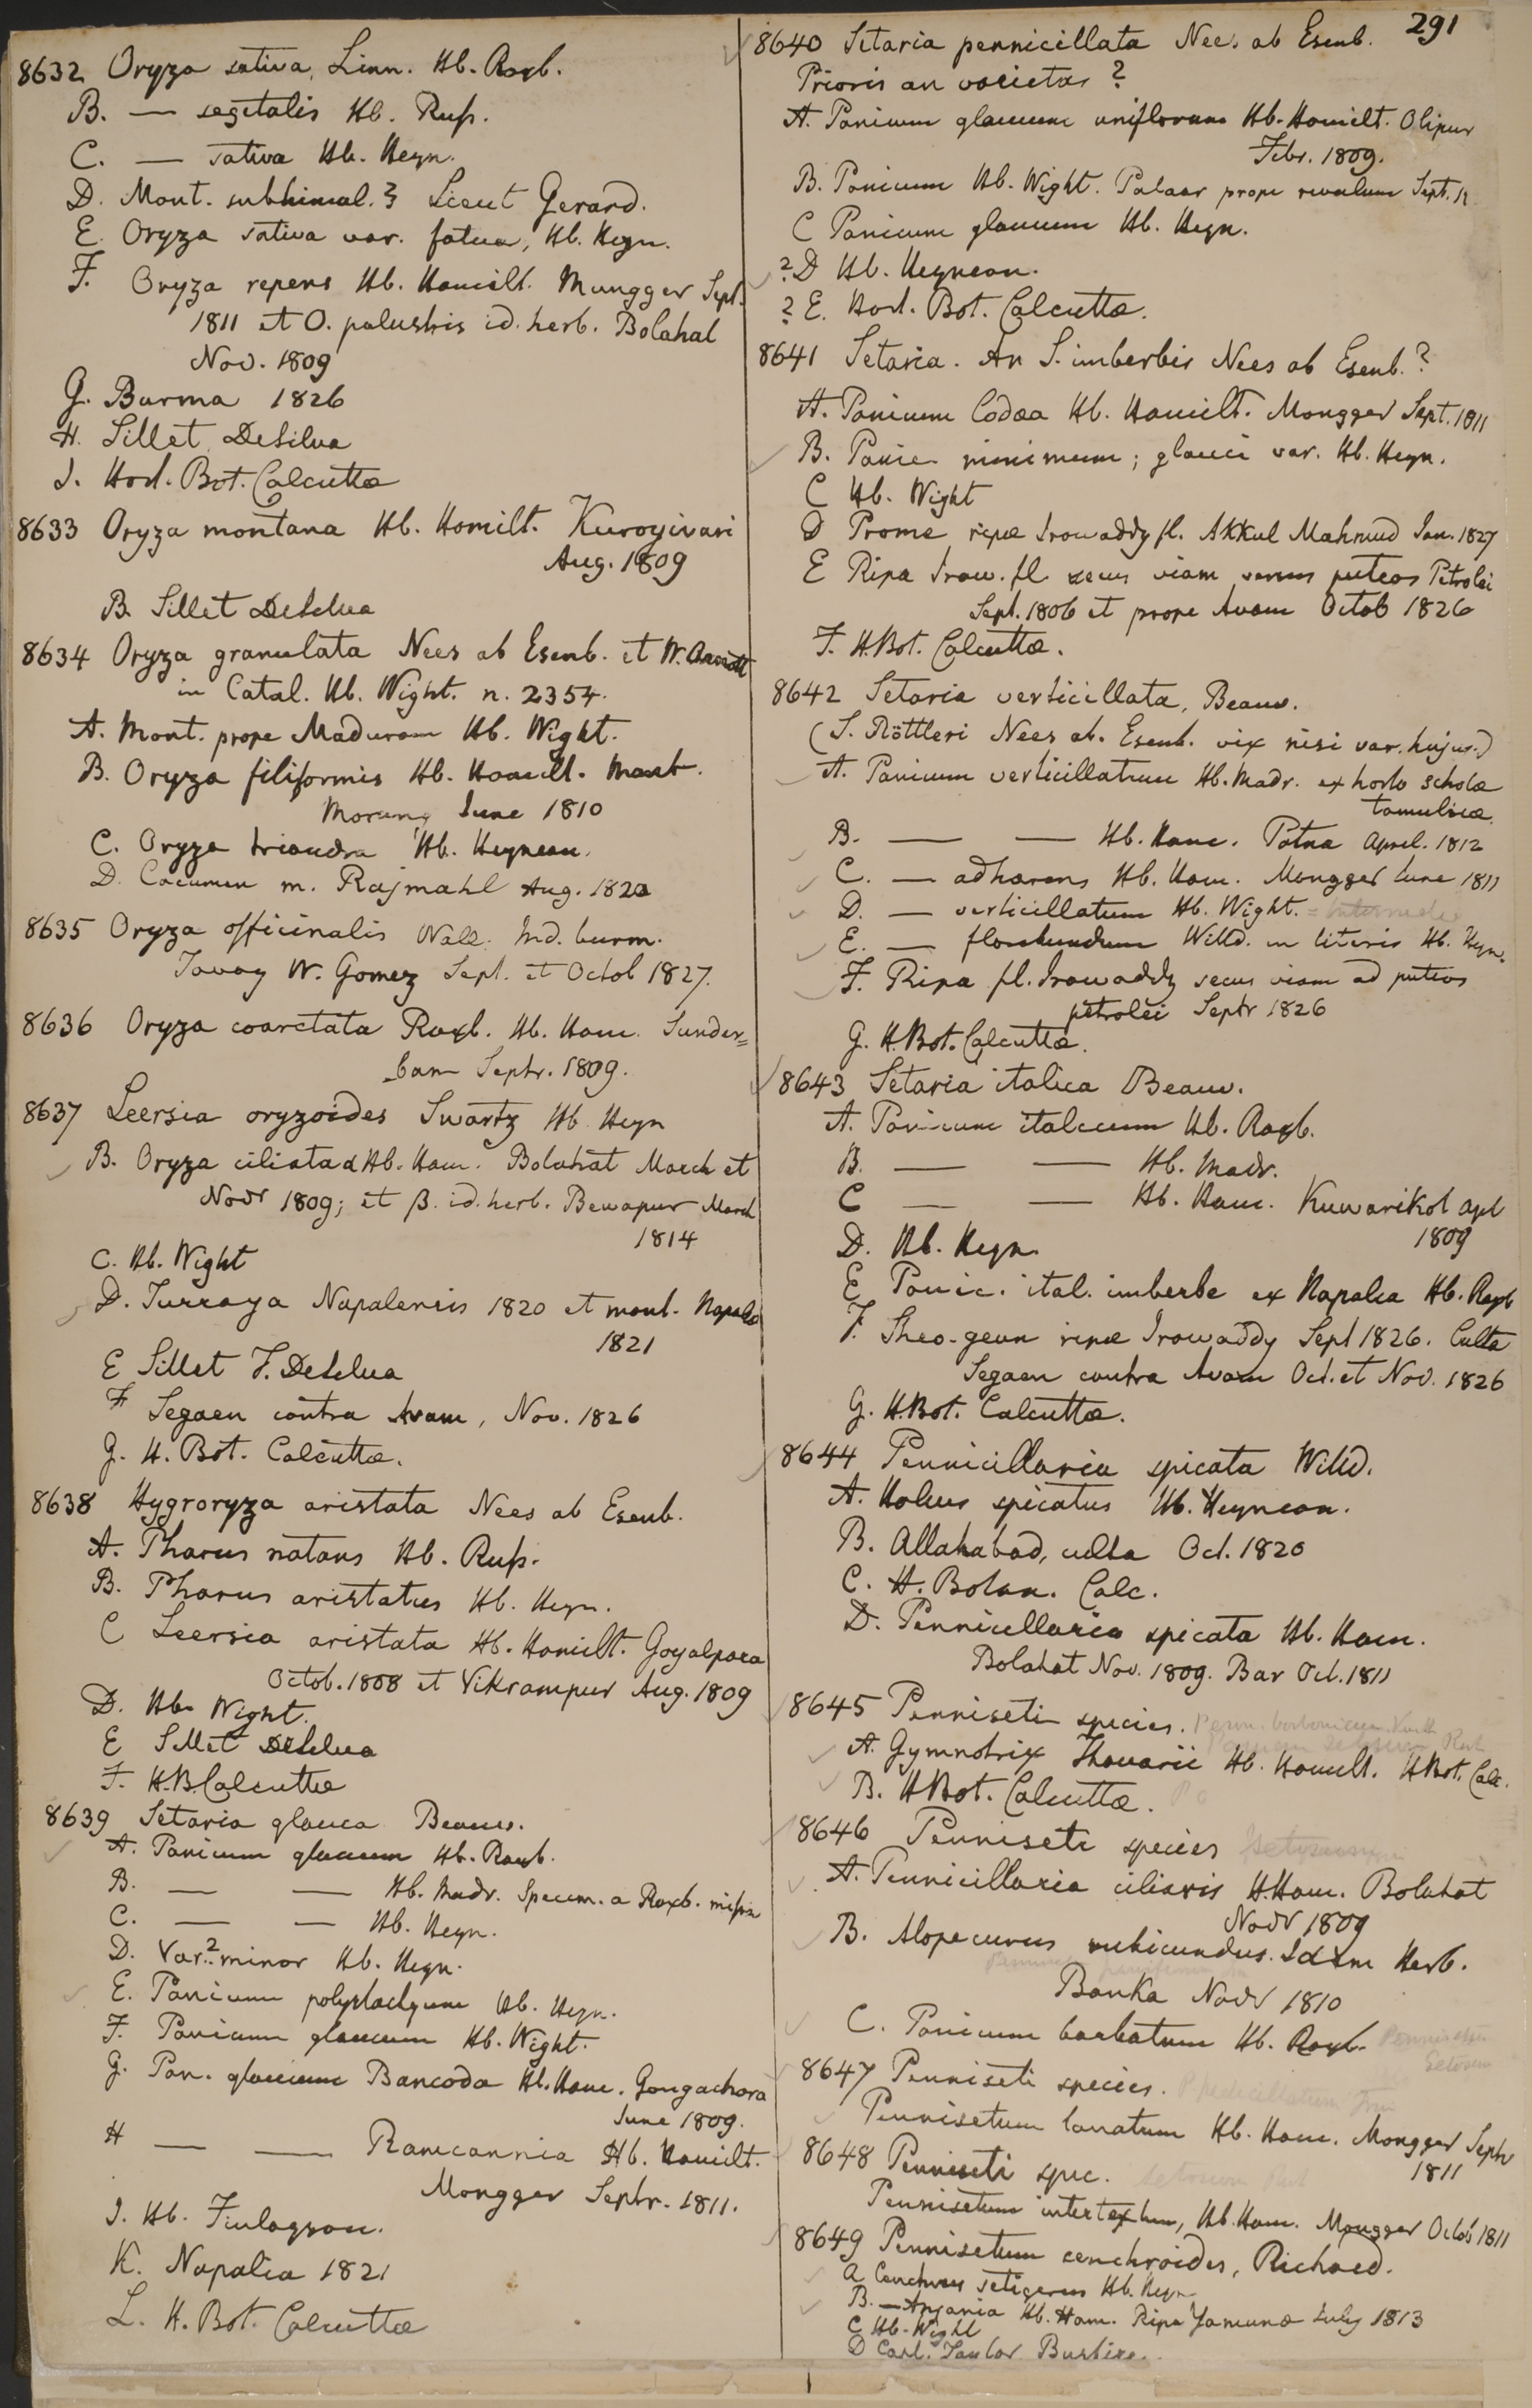 291
8632 Oryza sativa, Linn. Hb. Roxb.
B. — segetalis Hb. Rufs.
C. — sativa Hb. Heyn.
D. Mont. subhimal. } Lieut Gerard.
E Oryza sativa var. fatua, Hb. Heyn.
F. Oryza repens Hb. Hamilt. Mungger Sept.
1811 et O. palustris id. herb. Bolahal
Nov. 1809
G. Burma 1826
H. Sillet DeSilva
I. Hort. Bot. Calcutta
8633 Oryza montana Hb. Hamilt. Kuroyivari
Aug. 1809
B. Sillet DeSilva
8634 Oryza granulata Nees ab Esenb. et W. Arnott
in Catal. Hb. Wight. n. 2354.
A. Mont. prope Maduram Hb. Wight.
B. Oryza filiformis Hb. Hamilt. Mont.
Morung June 1810
C. Oryza triandra Hb. Heynean.
D. Cacumen m. Rajmahl Aug. 1820
8635 Oryza officinalis Wall. Ind. burm.
Tavoy W. Gomez Sept. et Octob 1827.
8636 Oryza coarctata Roxb. Hb. Ham. Sunder=
bam Septr. 1809.
8637 Leersia oryzoides Swartz Hb Heyn
B. Oryza ciliata α Hb. Ham. Bolahat March et
Novr 1809; et β. id. herb. Bewapur March
1814
C. Hb. Wight
D. Turraya Napalensis 1820 et mont. Napalia
1821
E Sillet F. DeSilva
F Segaen contra Avam, Nov. 1826
G. H. Bot. Calcuttæ.
8638 Hygroryza aristata Nees ab Esenb.
A. Pharus natans Hb. Rufs.
B. Pharus aristatus Hb. Heyn.
C Leersia aristata Hb. Hamilt. Goyalpara
Octob. 1808 et Vikrampur Aug. 1809
D. Hb. Wight.
E Sillet DeSilva
F. H.B. Calcuttæ
8639 Setaria glauca Beauv.
A. Panicum glaucum Hb. Roxb.
B. — — Hb. Madr. Specim. a Roxb. missa
C. — — Hb. Heyn.
D. Var.? minor Hb. Heyn.
E. Panicum polystachyum Hb. Heyn.
F. Panicum glaucum Hb. Wight.
G. Pan. glaucum Bancoda Hb. Ham. Gongachora
June 1809.
H — — Ramcannia Hb. Hamilt.
Mongger Septr. 1811.
I. Hb. Finlayson.
K. Napalia 1821
L. H. Bot. Calcuttæ
8640 Setaria pennicillata Nees ab Esenb.
Prioris an varietas?
A. Panicum glaucum uniflorum Hb. Hamilt. Olipur
Febr. 1809.
B. Panicum Hb. Wight. Palaar prope rivulum Sept.
C Panicum glaucum Hb. Heyn.
? D Hb. Heynean.
? E. Hort. Bot. Calcuttæ.
8641 Setaria. An S. imberbis Nees ab Esenb.?
A. Panicum Codaa Hb. Hamilt. Mongger Sept. 1811
B. Panic. minimum; glauci var. Hb. Heyn.
C Hb. Wight
D Prome, ripæ Irawaddy fl. Akkul Mahmud Jan. 1827
E Ripa Iraw. fl. secus viam versus puteos Petrolei
Sept. 1806 et prope Avam Octob 1826
F. H. Bot. Calcuttæ.
8642 Setaria verticillata, Beauv.
(S. Röttleri Nees ab. Esenb. vix nisi var. hujus.)
A. Panicum verticillatum Hb. Madr. ex horto scholæ
tamulicæ.
B. — — Hb. Ham. Patna April. 1812
C. — adhærens Hb. Ham. Mongger June 1811
D. — verticillatum Hb. Wight.
E. — Willd. in literis Hb. Heyn.
F. Ripa fl. Irawaddy secus viam ad puteos
petrolei Septr 1826
G. H. Bot. Calcuttæ.
8643 Setaria italica Beauv.
A. Panicum italicum Hb. Roxb.
B. — — Hb. Madr.
C — — Hb. Ham. Kuwarikol Apl
1809
D. Hb. Heyn.
E Panic. ital. imberbe ex Napalia Hb. Roxb
F. Theo-geun ripæ Irawaddy Sept 1826. Culta
Segaen contra Avam Oct. et Nov. 1826
G. H. Bot. Calcuttæ.
8644 Pennicillaria spicata Willd.
A. Holcus spicatus Hb. Heynean.
B. Allahabad, culta Oct. 1820
C. H. Botan. Calc.
D. Pennicillaria spicata Hb. Ham.
Bolahat Nov. 1809. Bar Oct. 1811
8645 Penniseti species.
A. Gymnotrix Thouarii Hb. Hamilt. H Bot. Calc.
B. H Bot. Calcuttæ.
8646 Penniseti species
A. Pennicillaria ciliaris H. Ham. Bolahat
Novr 1809
B. Alopecurus rubicundus. Idem Herb.
Banka Novr 1810
C. Panicum barbatum Hb. Roxb.
8647 Penniseti species.
Pennisetum lanatum Hb. Ham. Mongger Septr
1811
8648 Penniseti spec.
Pennisetum intertextum, Hb. Ham. Mongger Octob 1811
8649 Pennisetum cenchroides, Richard.
A Cenchrus setigerus Hb. Heyn
B. — Anjania Hb. Ham. Ripa Yamunæ July 1813
C Hb. Wight
D Capt. Taylor Bushire.